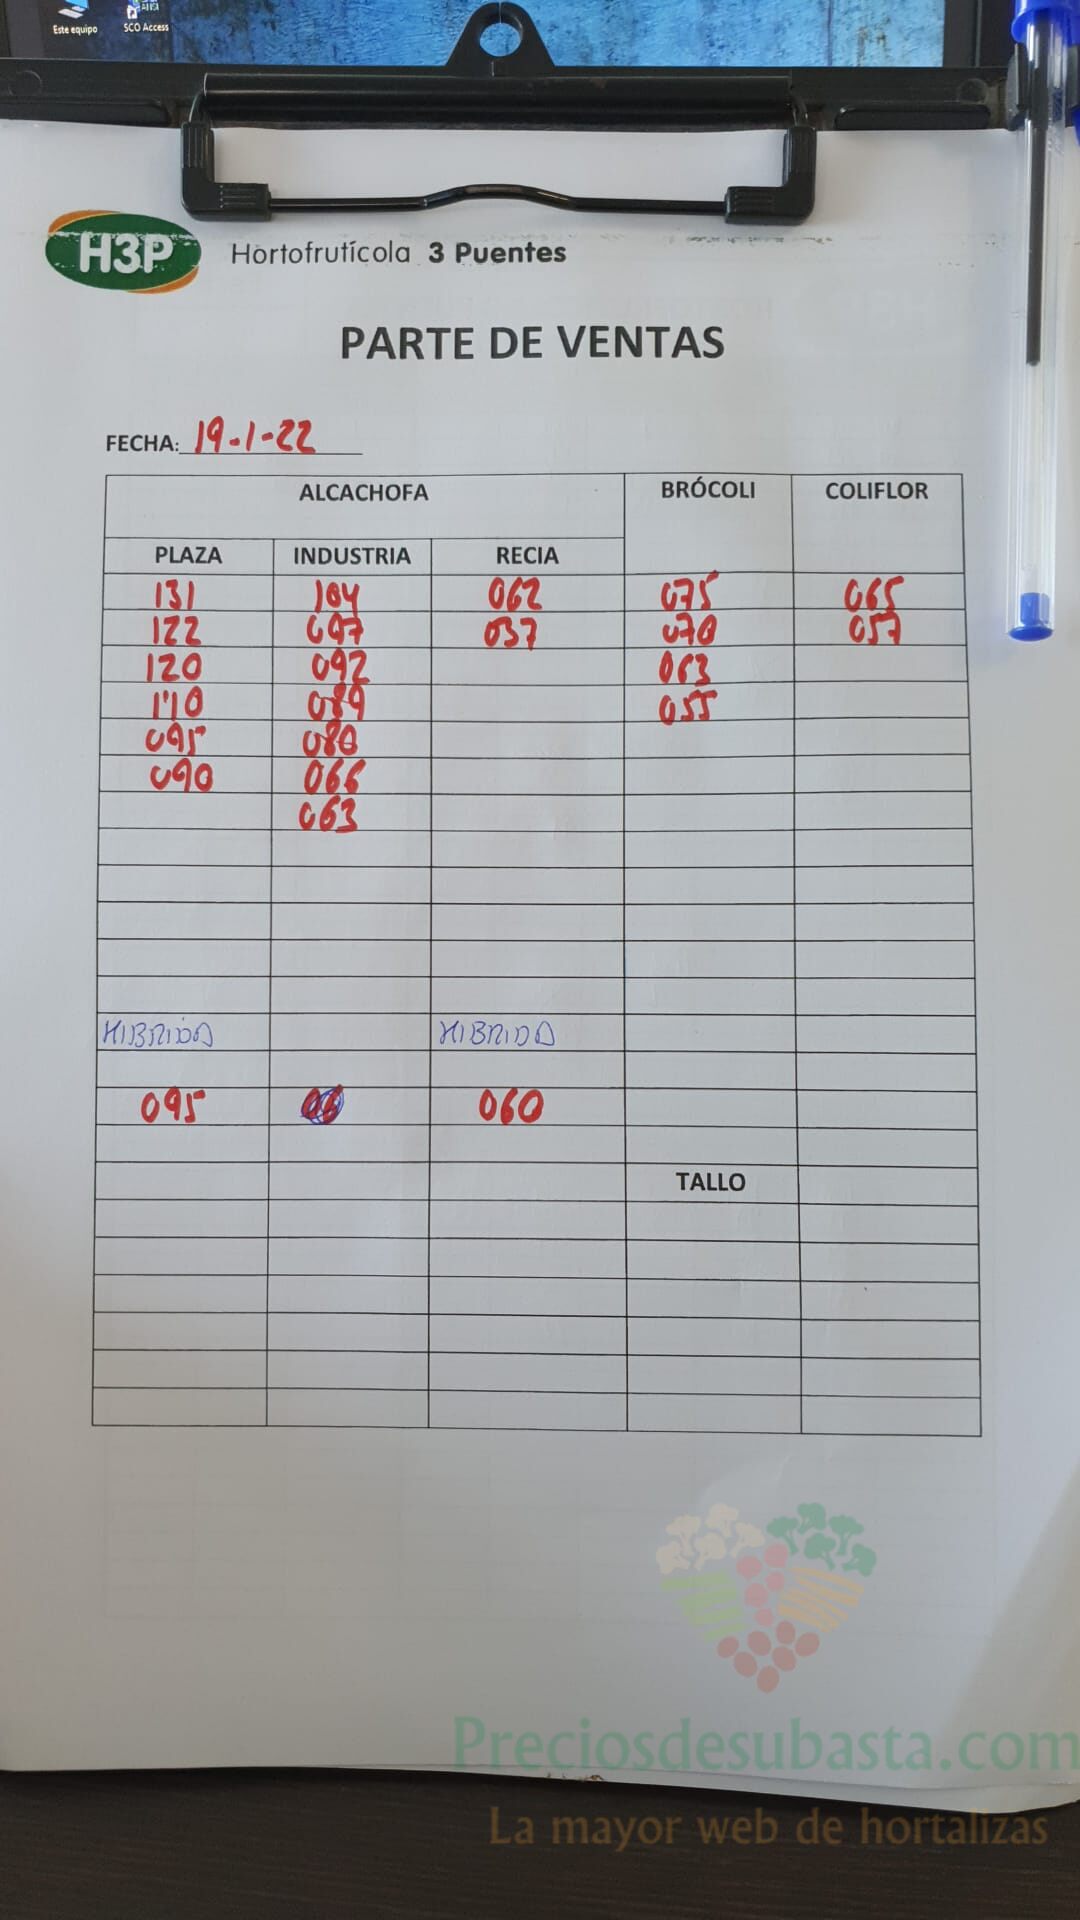 Este equipo
SCO Access
H3P Hortofrutícola 3 Puentes
PARTE DE VENTAS
FECHA: 19-1-22
ALCACHOFA BRÓCOLI COLIFLOR
PLAZA INDUSTRIA RECIA
131 104 062 075 065
122 097 037 070 057
120 092 063
110 089 055
095 080
090 066
063
HIBRIDA HIBRIDA
095 060
TALLO
Preciosdesubasta.com
La mayor web de hortalizas